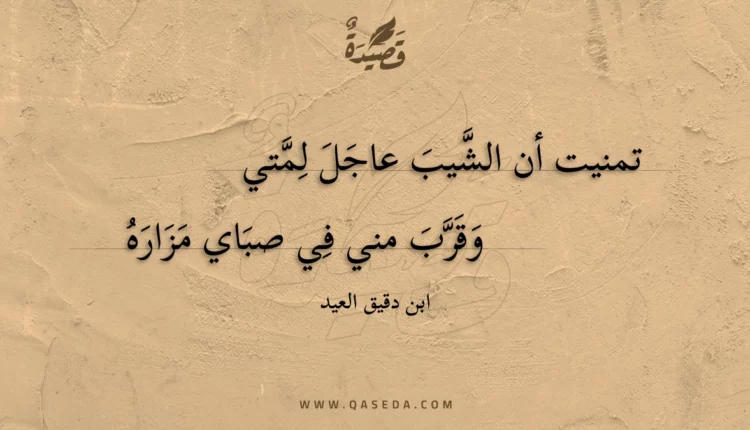 قَصِيدَةٌ
تمنيت أن الشَّيبَ عاجَلَ لِمَّتي
وَقَرَّبَ مني فِي صبَاي مَزَارَهُ
ابن دقيق العيد
WWW.QASEDA.COM